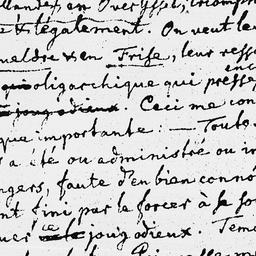 llandes, en Overyssel,
e & légalement. On veut le
ueldre & en Frise, leur ress
oligarchique qui presse enc
joug odieux. Ceci me con
que importante: — Toute
s a été ou administré ou
ngers, faute d'en bien conno
nt fini par le forcer à se so
uer ce joug odieux. Tem